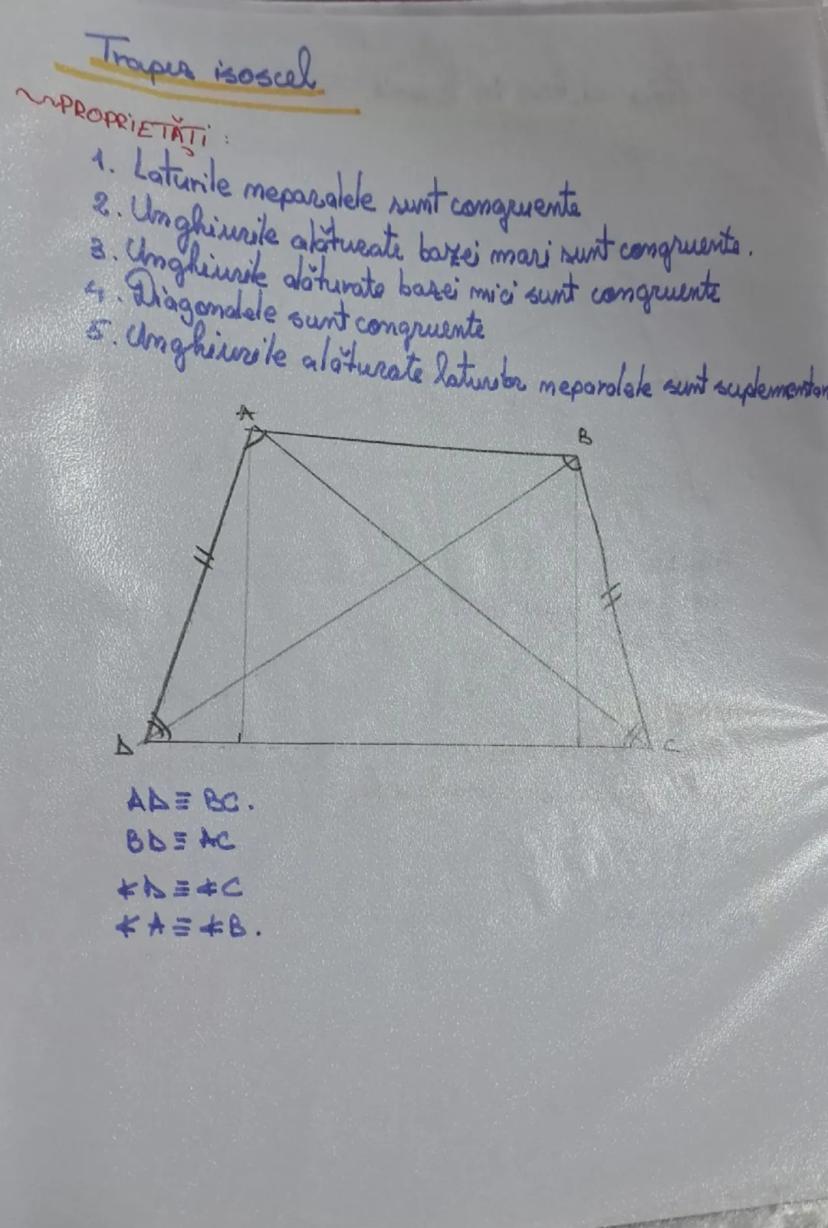 Trapez isoscel
PROPRIETĂȚI:
1. Laturile neparalele sunt congruente
2. Unghiurile alăturate bazei mari sunt congruente.
3. Unghiurile alăturate bazei mici sunt congruente
4. Diagonalele sunt congruente
5. Unghiurile alăturate laturilor neparalele sunt suplementar
A
B
D
C
AD ≡ BC.
BD ≡ AC
∢D ≡ ∢C
∢A ≡ ∢B.